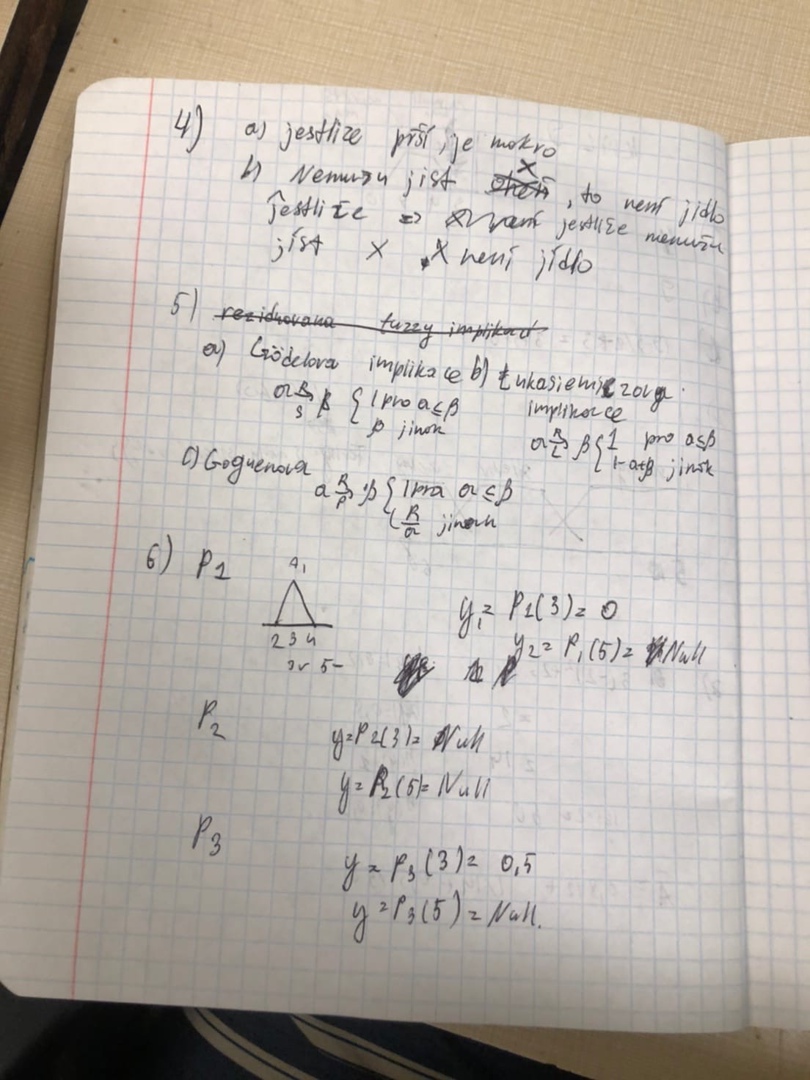 4) a) jestlize prší, je mokro
x
b) Nemuzu jíst, to není jídlo
jestliže => jestliže nemužu
jíst X X není jídlo
5) rezidnovana fuzzy implikací
a) Gödelova implikace b) Łukasiewiczova
implikace
α R→S β { 1 pro α ≤ β
β jinak
α R→L β { 1 pro α ≤ β
1-α+β jinak
c) Goguenova
α R→P β { 1 pro α ≤ β
β/α jinak
6) P1
A1
2 3 4
5
y1 = P1(3) = 0
y2 = P1(5) = Null
P2
y = P2(3) = Null
y = P2(5) = Null
P3
y = P3(3) = 0,5
y = P3(5) = Null.